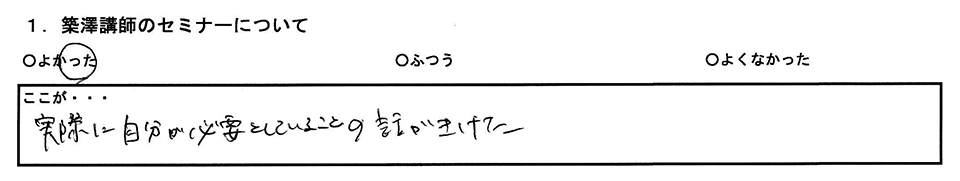 1．築澤講師のセミナーについて
○よかった ○ふつう ○よくなかった
ここが・・・
実際に自分が必要としていることの話がきけた